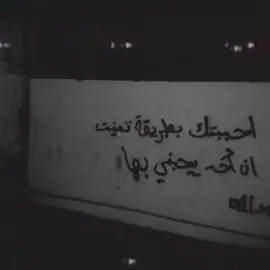 أحببتك بطريقة تمنيت
ان أحد يحبني بها